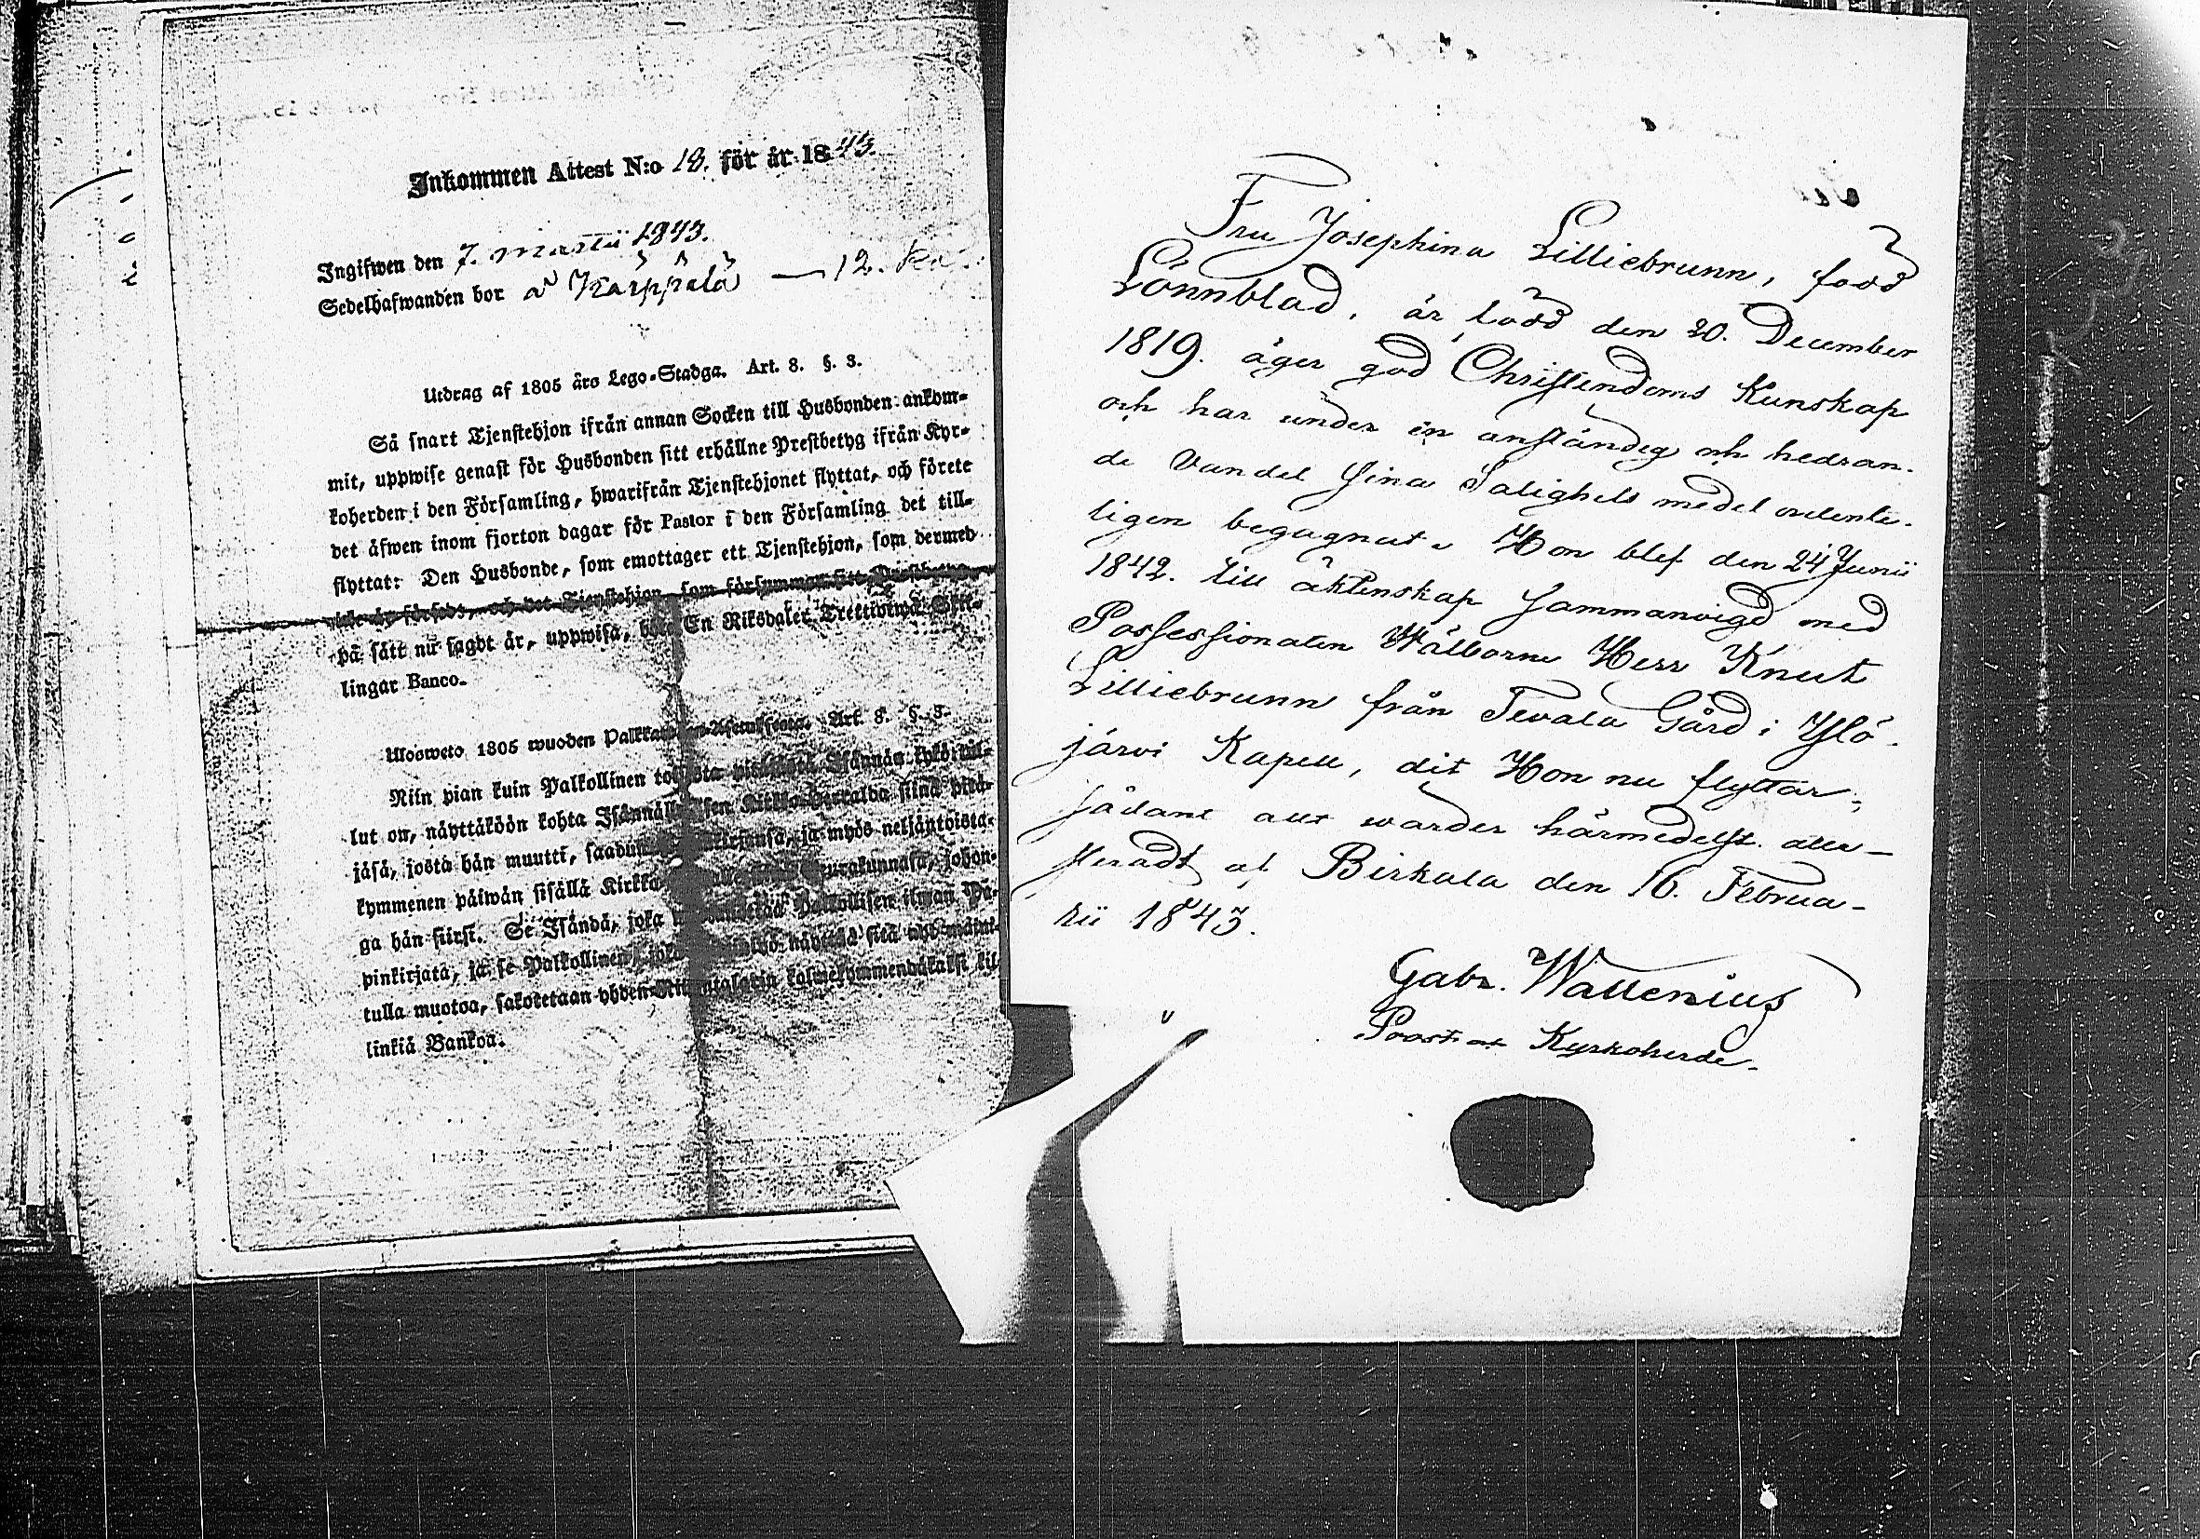 Inkommen Attest N:o 18. för år 1843.
Ingifwen den 7. martii 1843.
Sedelhafwanden bor å Käppälä — 12.
Utdrag af 1805 års Lego-Stadga. Art. 8. §. 3.
Så snart Tjenstehjon ifrån annan Socken till Husbonden ankom-
mit, uppwise genast för Husbonden sitt erhållne Prestbetyg ifrån Kyr-
koherden i den Församling, hwarifrån Tjenstehjonet flyttat, och förete
det äfwen inom fjorton dagar för Pastor i den Församling det till-
flyttat: Den Husbonde, som emottager ett Tjenstehjon, som dermed
icke är försedt, och det Tjenstehjon som försummar sitt Prestbetyg
på sätt nu sagdt är, uppwisa, böte En Riksdaler Trettiotwå Skil-
lingar Banco.
Ulosweto 1805 wuoden Palkkawäen-Asetuksesta. Art. 8. §. 3.
Niin pian kuin Palkollinen toisesta pitäjästä Isännän tykö tul-
lut on, näyttäköön kohta Isännällensä sen Kirkko-Herralda siinä pitä-
jäsä, josta hän muutti, saadun, ja myös neljäntoista-
kymmenen päiwän sisällä Kirkko Seurakunnasa, johon-
ga hän siirsi. Se Isändä, joka Palkollisen ilman Pa-
pinkirjata, ja se Palkollinen, joka näyttää sitä nyt mainit-
tulla muotoa, sakotetaan yhden Riikintalarin kolmekymmendäkaksi kil-
linkiä Bankoa.
Fru Josephina Lilliebrunn, född
Lönnblad, är född den 20. December
1819. äger god Christendoms Kunskap
och har under en anständig och hedran-
de Vandel sina Salighets medel ordente-
ligen begagnat. Hon blef den 24 Junii
1842. till äktenskap sammanvigd med
Possessionaten Wälborne Herr Knut
Lilliebrunn från Tevala Gård i Ylö-
järvi Kapell, dit Hon nu flyttar;
sådant allt warder härmedelst atte-
steradt af Birkala den 16. Februa-
rii 1843.
Gabr. Wallenius
Prost och Kyrkoherde.